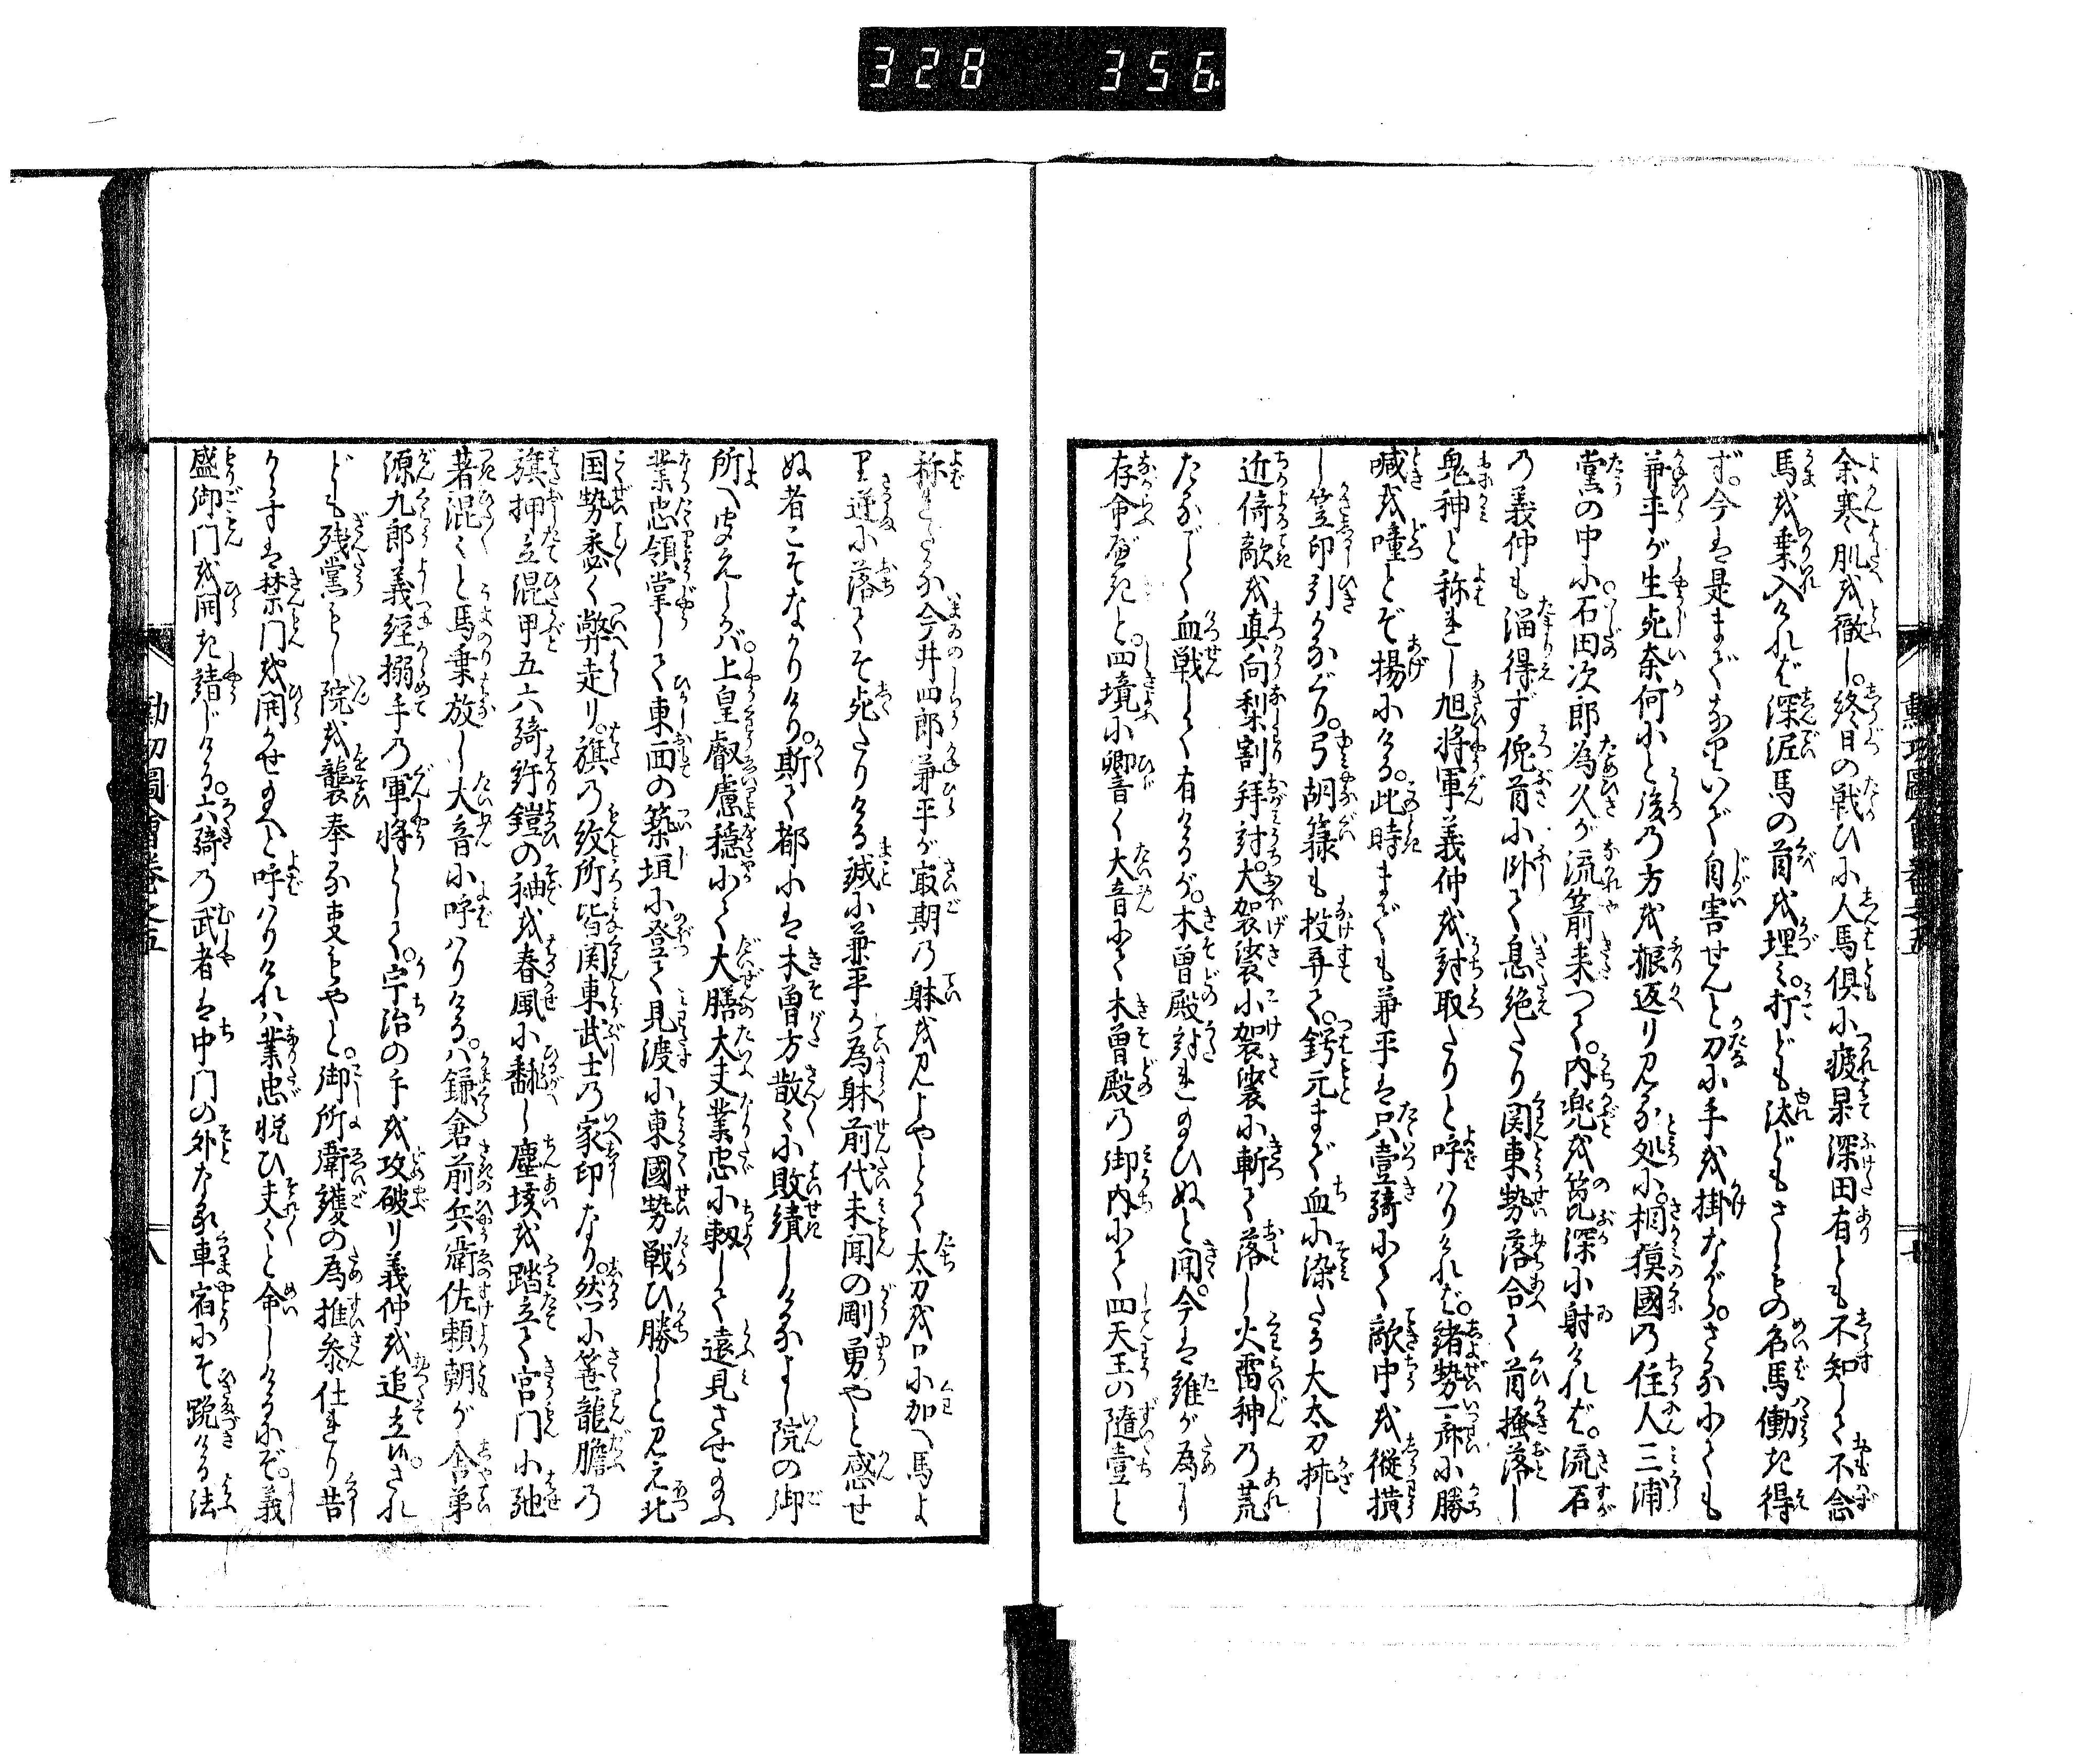 328 356
余寒肌を徹し。終日の戦ひに人馬倶に疲果深田有とも不知して不念
馬を乗入ければ深泥馬の首を埋み。打ども汰どもさしもの名馬働き得
ず。今は是までなりいで自害せんと刀に手を掛ながら。さるにても
兼平が生死奈何にと後の方を振返り見る処に。相摸國の住人三浦
黨の中に石田次郎為久が流箭来つて。内兜を篦深に射ければ。流石
の義仲も溜得ず俛首に臥て息絶たり関東勢落合て首掻落し
鬼神と称れし旭将軍義仲を討取たりと呼はりければ。諸勢一斉に勝
喊を噇とぞ揚にける。此時までも兼平は只壹騎にて敵中を縦横
し笠印引かなぐり。弓胡籙も投弃て。鍔元まで血に染たる大太刀捽し
近倚敵を真向梨割拜討。大袈裟小袈裟に斬て落し火雷神の荒
たるごとく血戦して有けるが。木曽殿討れ給ひぬと聞。今は誰が為に
存命べきと。四境に響く大音にて木曽殿の御内にて四天王の隨壹と
称れたる今井四郎兼平が㝡期の躰を見よやとて太刀を口に加へ馬よ
り逆に落てぞ死たりける誠に兼平が為躰前代未聞の剛勇やと感せ
ぬ者こそなかりけり。斯て都には木曽方散々に敗績しけるよし院の御
所へ聞えしかバ。上皇叡慮穏にて大膳大夫業忠に勅して遠見させ給ふ
業忠領掌して東面の築垣に登て見渡に東國勢戦ひ勝しと見え北
国勢悉く弊走り。旗の紋所皆関東武士の家印なり。然に笹龍膽の
旗押立混甲五六騎錺鎧の袖を春風に飜し塵埃を踏立て宮門に馳
著混々と馬乗放し大音に呼はりける。ハ鎌倉前兵衛佐頼朝が舎弟
源九郎義経搦手の軍将として。宇治の手を攻破り義仲を追立候。され
ども残黨もし院を襲奉る事もやと。御所衛護の為推参仕れり昔
からずは禁門を開かせ給へと呼はりけれハ業忠悦ひ夫々と命しけるにぞ。義
盛御門を開き請じける。六騎の武者は中門の外なる車宿にぞ跪ける法
勳功圖會巻之五
七
勳功圖會巻之五
八